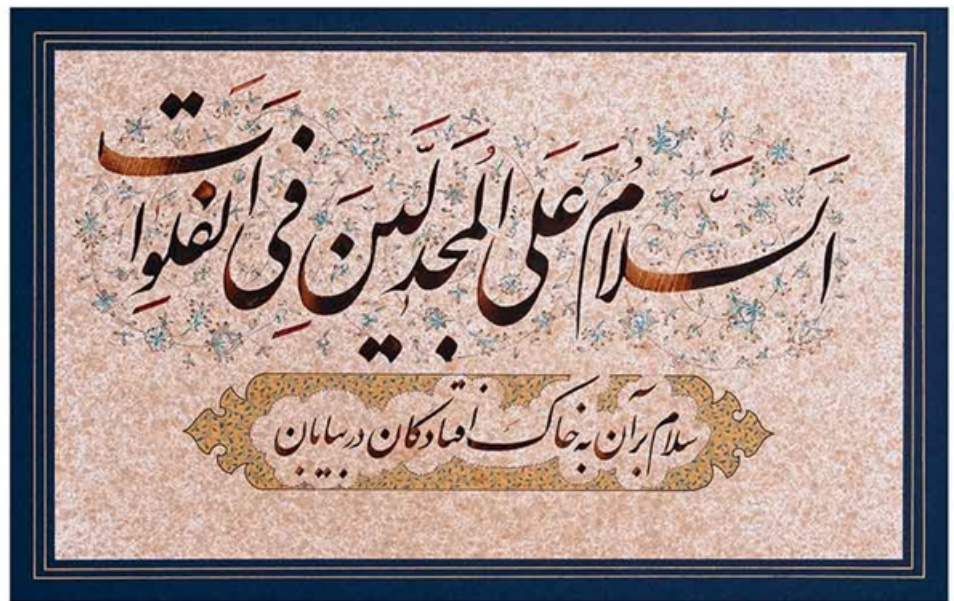 اَلسَّلامُ عَلَی المُجَدَّلینَ فِی الفَلَواتِ
سلام بر آن به خاک افتادگان در بیابان